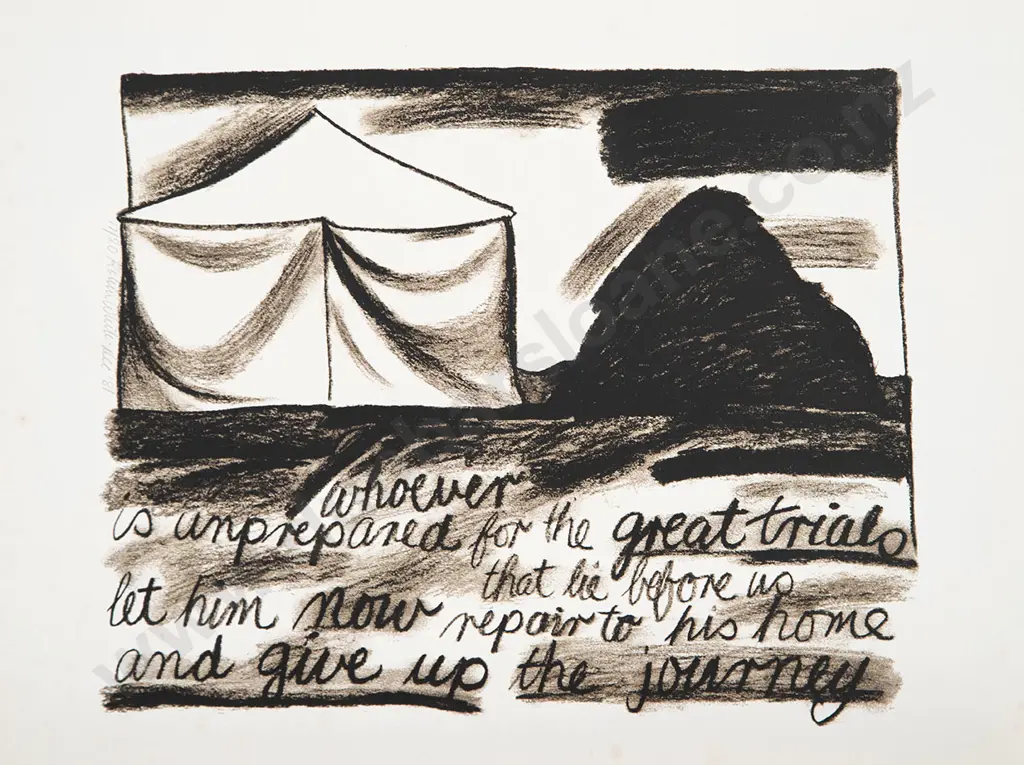 whoever
is unprepared for the great trials
that lie before us
let him now repair to his home
and give up the journey